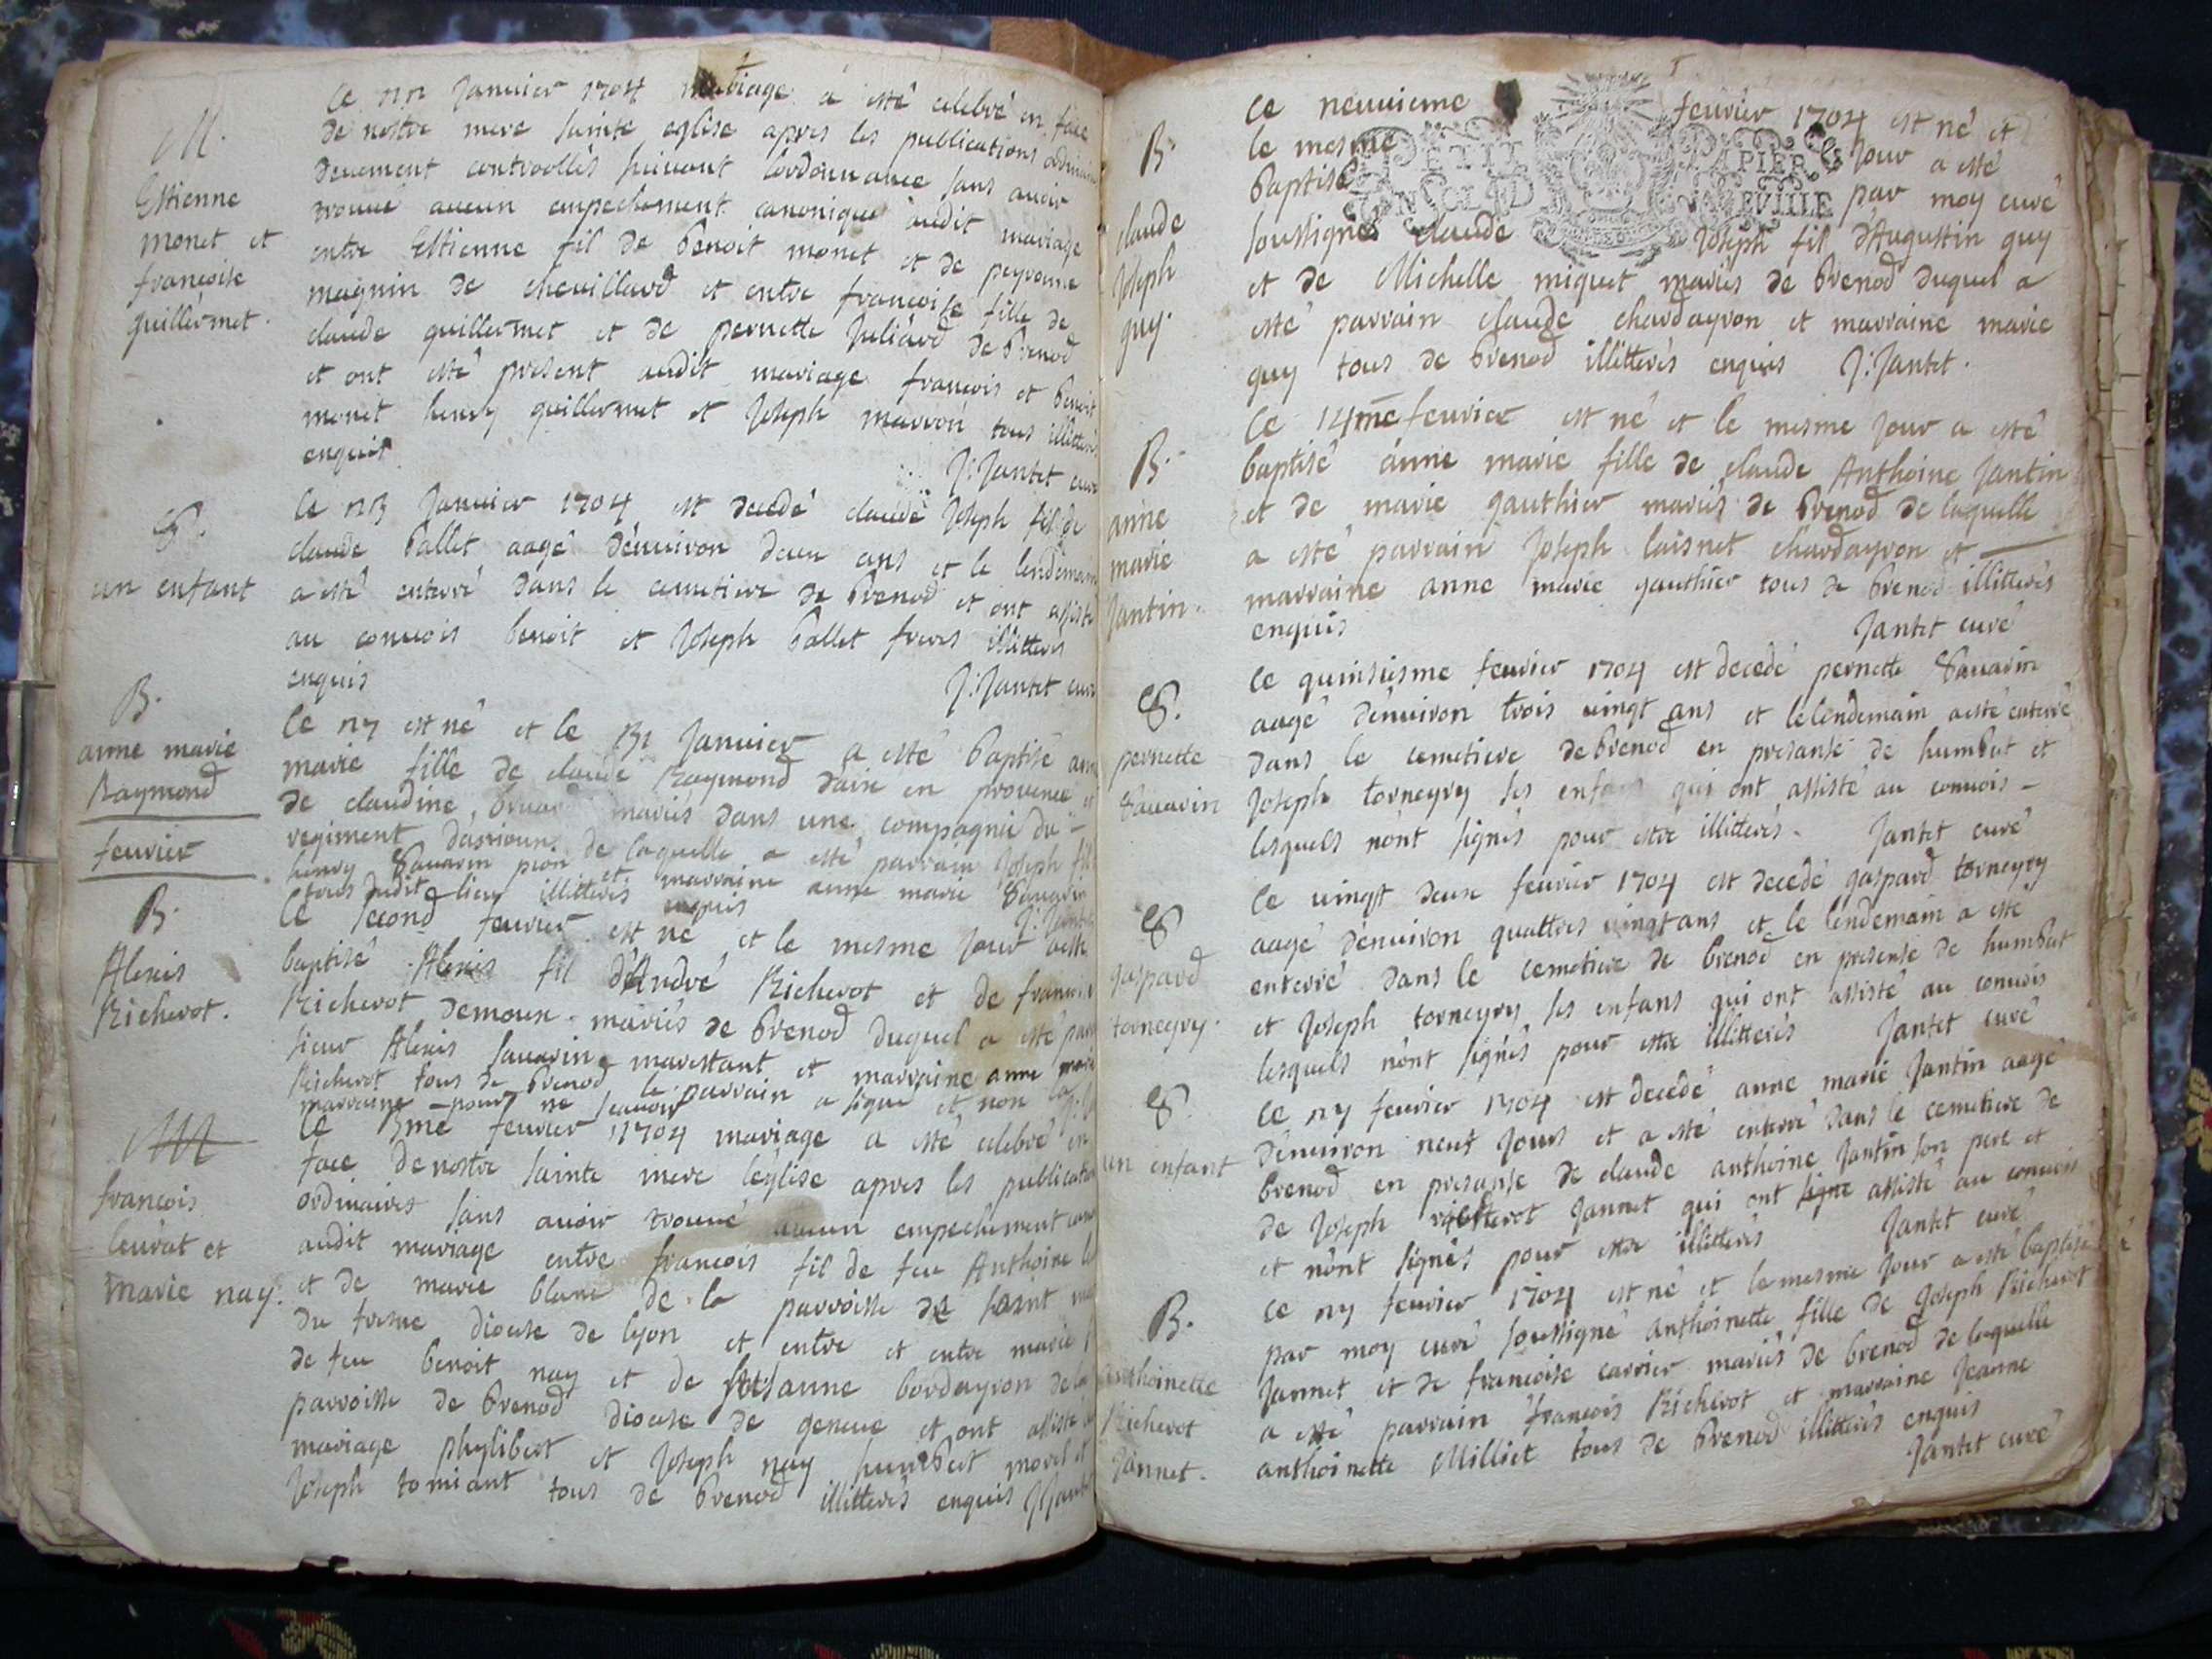 M.
Estienne
monet et
francoise
guillermet.
Ce janvier 1704 mariage a esté celebré en face
de nostre mere sainte eglise apres les publications
deuement controollés suivant l'ordonnance sans avoir
trouvé aucun empechement canonique audit mariage
entre Estienne fil de benoit monet et de peyronne
magnin de chevillard et entre francoise fille de
claude guillermet et de pernette Juliard de brenod
et ont esté present audit mariage francois et benoit
monet henry guillermet et Joseph marron tous illitterés
enquis
J: Jantet curé
S.
un enfant
Ce janvier 1704 est decedé claude Joseph fil de
claude ballet aagé d'environ deux ans et le lendemain
a esté enterré dans le cemetiere de brenod et ont assisté
au convois benoit et Joseph ballet freres illitterés
enquis
J: Jantet curé
B.
anne marie
Raymond
Ce est né et le janvier a esté baptisé anne
marie fille de claude Raymond d'aire en provence et
de claudine mariés dans une compagnie du
regiment de laquelle a esté parrain Joseph fils
henry Savarin pion et marraine anne marie Savarin
tous dudit lieu illitterés enquis J: Jantet
fevrier
B.
Alexis
Richerot.
Ce second fevrier est né et le mesme jour a esté
baptisé Alexis fil d'André Richerot et de
Richerot demoux mariés de brenod duquel a esté
sieur Alexis savarin marestant et marraine anne marie
Richerot tous de brenod le parrain a signé et non la
marraine pour ne scavoir
M
francois
levrat et
marie nay.
Ce fevrier 1704 mariage a esté celebré en
face de nostre sainte mere l'eglise apres les publications
ordinaires sans avoir trouvé aucun empechement
audit mariage entre francois fil de feu Anthoine
et de marie blanc de la parroisse de saint
du fresne diocese de lyon et entre et entre marie
de feu benoit nay et de susanne bordayron de la
parroisse de brenod diocese de geneve et ont assisté
mariage phylibert et Joseph nay humbert morel et
Joseph tomiant tous de brenod illitterés enquis J: Jantet
B.
claude
Joseph
guy.
PETIT PAPIER
Ce neuvieme fevrier 1704 est né et
le mesme jour a esté
baptisé par moy curé
soussigné claude Joseph fil d'Augustin guy
et de Michelle miguet mariés de brenod duquel a
esté parrain claude chardayron et marraine marie
guy tous de brenod illitterés enquis J: Jantet.
B.
anne
marie
Jantin.
Ce 14me fevrier est né et le mesme jour a esté
baptisé anne marie fille de claude Anthoine Jantin
et de marie gauthier mariés de brenod de laquelle
a esté parrain Joseph laisnet chardayron et
marraine anne marie gauthier tous de brenod illitterés
enquis
Jantet curé
S.
pernette
Savarin
Ce quinsiesme fevrier 1704 est decedé pernette Savarin
aagé d'environ trois vingt ans et le lendemain a esté enterré
dans le cemetiere de brenod en presanse de humbert et
Joseph torneyry ses enfans qui ont assisté au convois
lesquels n'ont signés pour estre illitterés. Jantet curé
S
gaspard
torneyry.
Ce vingt deux fevrier 1704 est decedé gaspard torneyry
aagé d'environ quattres vingt ans et le lendemain a esté
enterré dans le cemetiere de brenod en presense de humbert
et Joseph torneyry ses enfans qui ont assisté au convois
lesquels n'ont signés pour estre illitterés Jantet curé
S.
un enfant
Ce fevrier 1704 est decedé anne marie Jantin aagé
d'environ neuf jours et a esté enterré dans le cemetiere de
brenod en presanse de claude anthoine Jantin son pere et
de Joseph richerot Jannet qui ont signe assisté au convois
et n'ont signés pour estre illitterés Jantet curé
B.
anthoinette
Richerot
Jannet.
Ce fevrier 1704 est né et le mesme jour a esté baptisé
par moy curé soussigné anthoinette fille de Joseph Richerot
Jannet et de francoise carrier mariés de brenod de laquelle
a esté parrain francois Richerot et marraine Jeanne
anthoinette Milliet tous de brenod illitterés enquis
Jantet curé